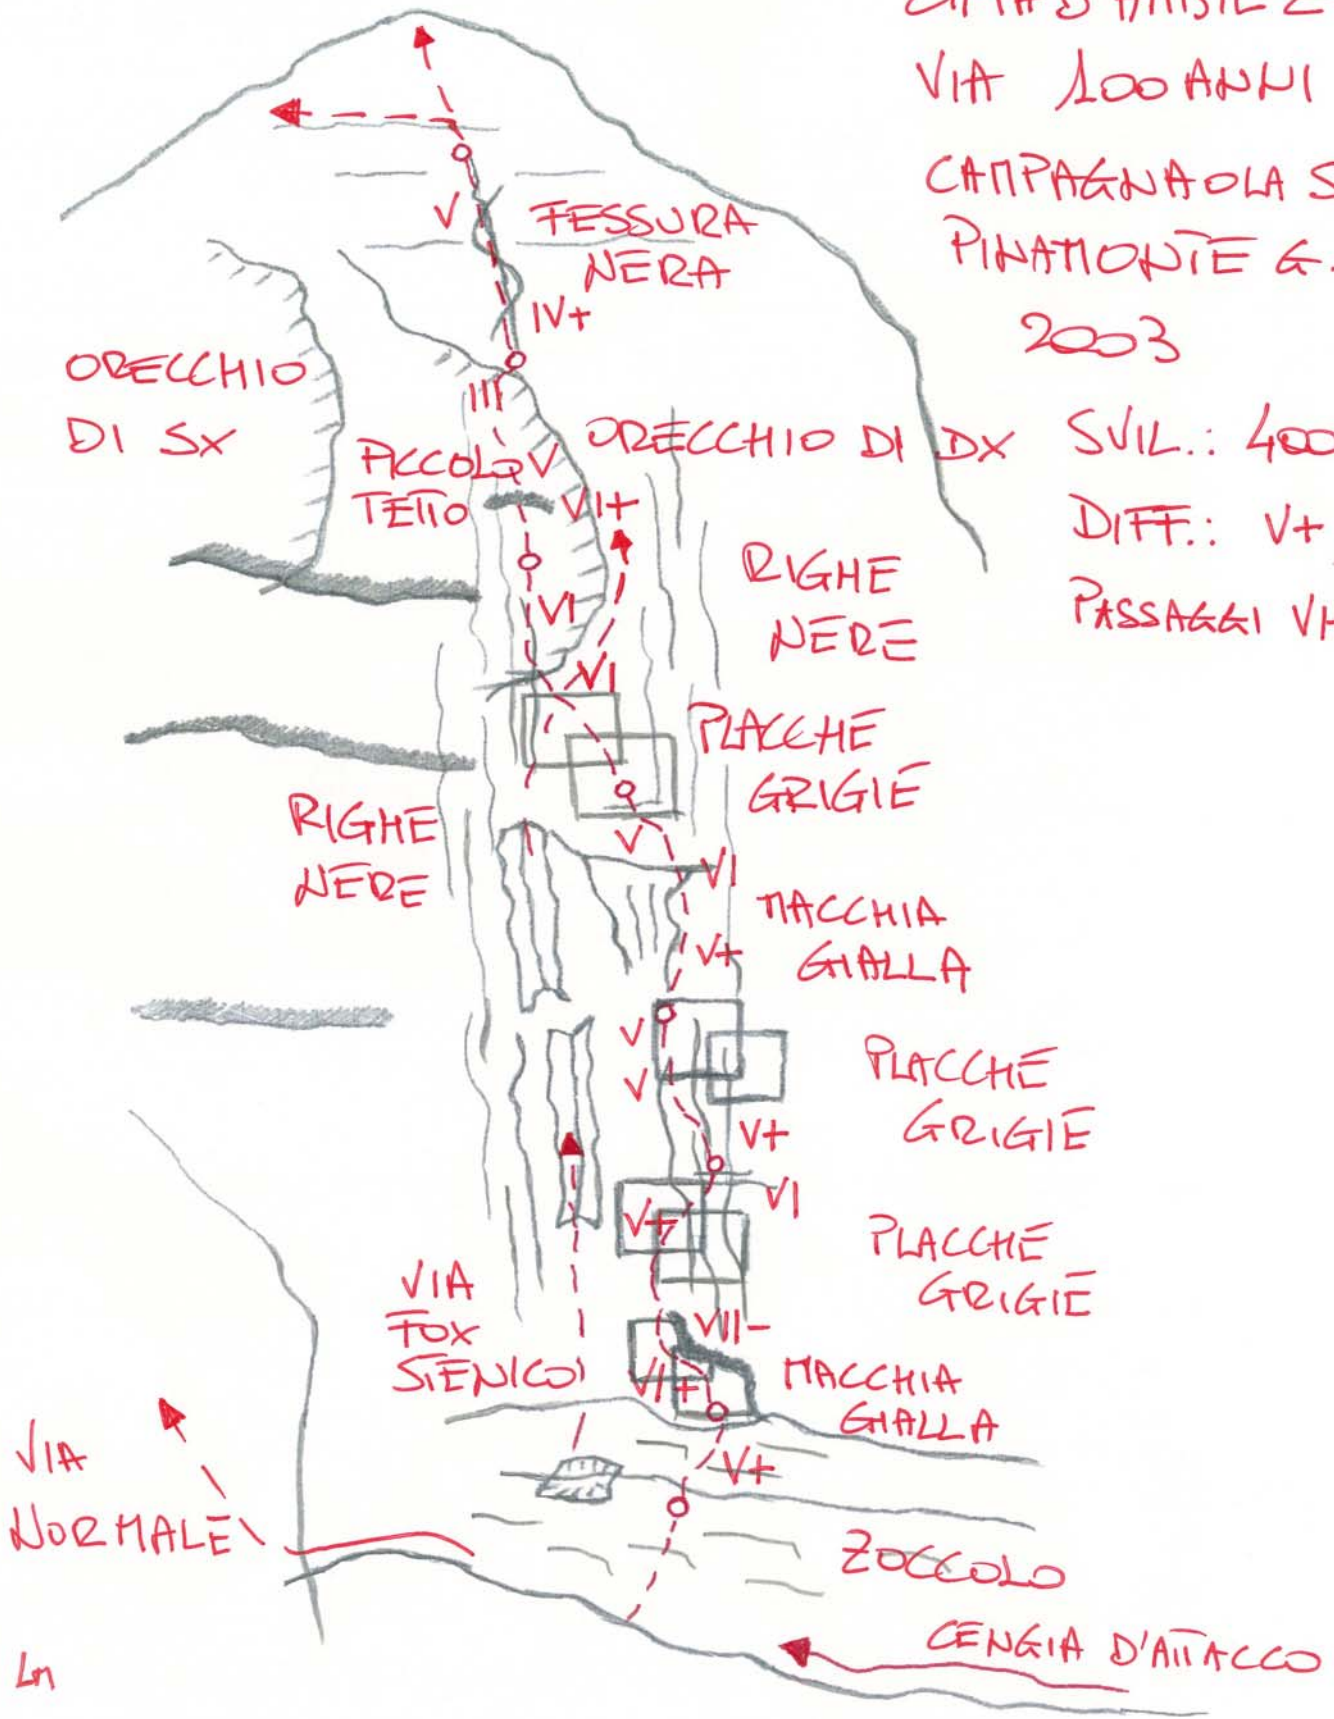 VIA 100 ANNI
CAMPAGNAOLA S
PINAMONTE G.
2003
SVIL.: 400
DIFF.: V+
PASSAGGI VI
V
FESSURA
NERA
IV+
ORECCHIO
DI SX
III
ORECCHIO DI DX
PICCOLO
TETTO
V
VI+
RIGHE
NERE
VI
VI
PLACCHE
GRIGIE
RIGHE
NERE
V
VI
MACCHIA
GIALLA
V+
V
V
PLACCHE
GRIGIE
V+
VI
V+
PLACCHE
GRIGIE
VIA
FOX
STENICO
VII-
VI+
MACCHIA
GIALLA
V+
VIA
NORMALE
ZOCCOLO
CENGIA D'ATTACCO
Lm